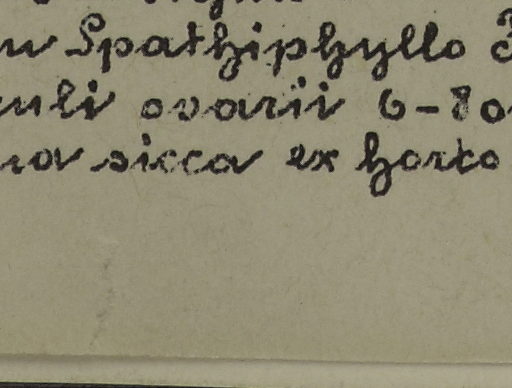 Spathiphyllo 3
uli ovarii 6-8 o
sicca ex horto